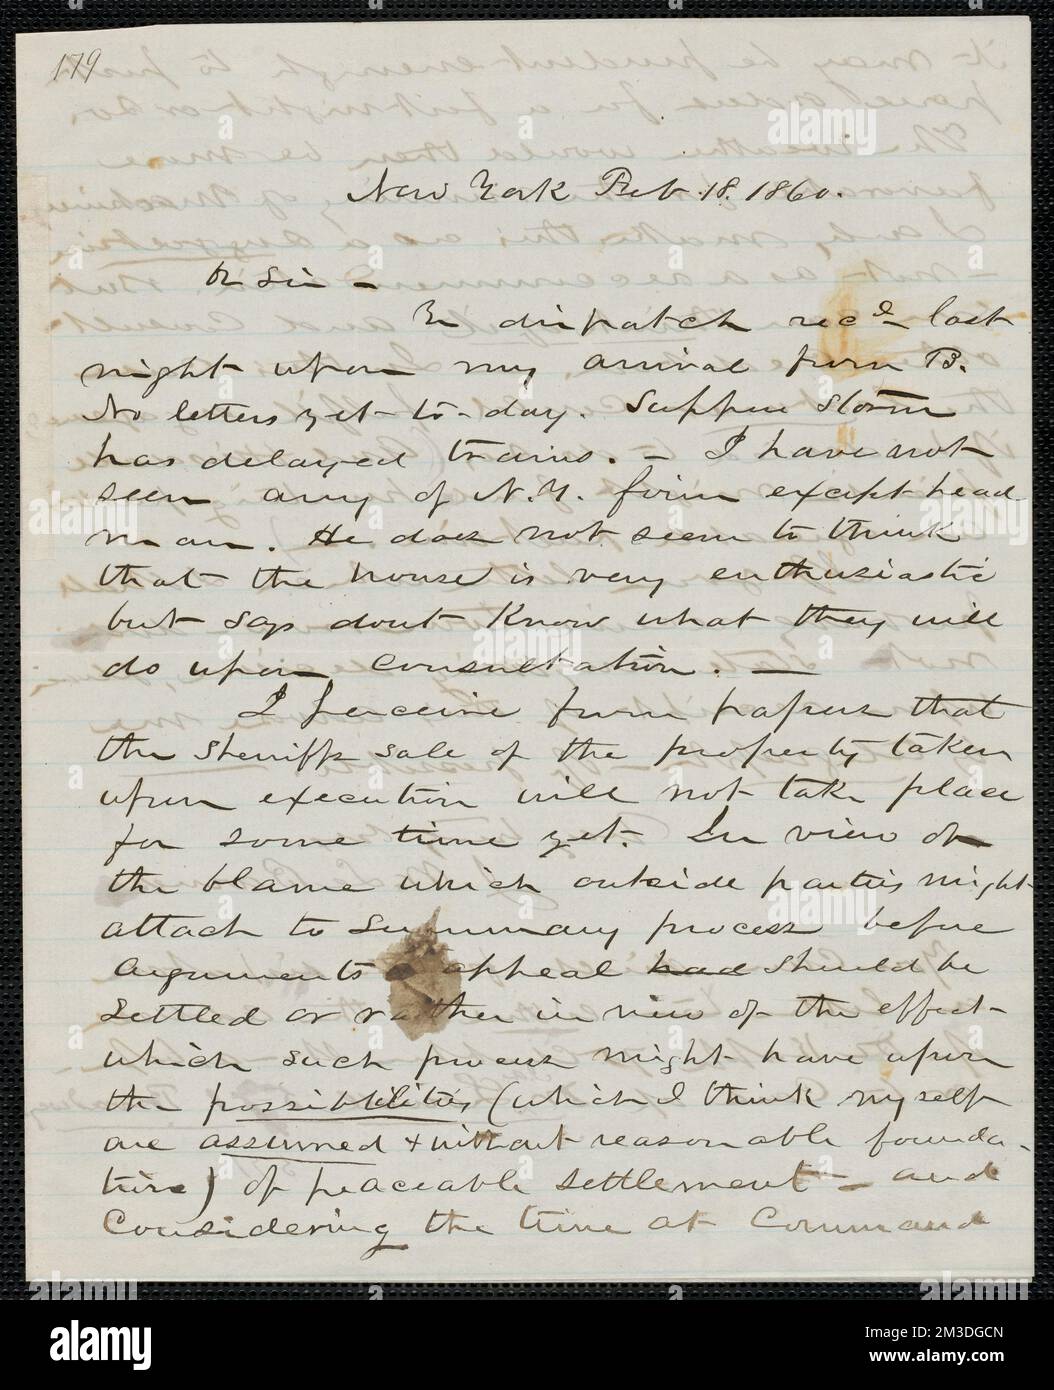 179
New York Feb. 18. 1860.
Dr Sir –
Yr dispatch recd last
night upon my arrival from B.
No letters yet to-day. Suppose storm
has delayed trains. – I have not
seen any of N.Y. firm except head
man. He does not seem to think
that the house is very enthusiastic
but says dont know what they will
do upon consultation. –
I perceive from papers that
the Sheriffs sale of the property taken
upon execution will not take place
for some time yet. In view of
the blame which outside parties might
attach to summary process before
arguments appeal had should be
settled or rather in view of the effect
which such process might have upon
the possibilities (which I think myself
are assumed & without reasonable founda-
tion) of peaceable settlement – and
Considering the time at command
alamy
Image ID: 2M3DGCN
www.alamy.com